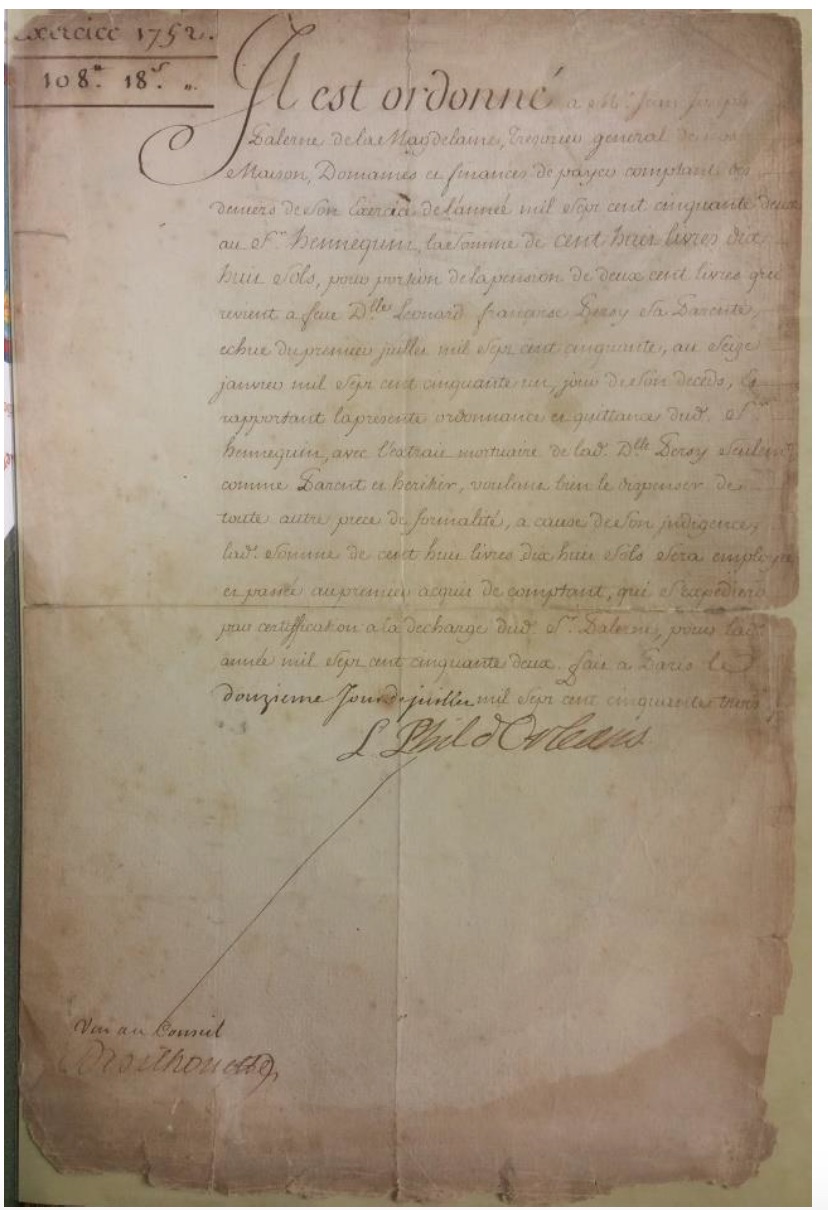 Exercice 1752.
108ᵗᵗ. 18ˢ. „.
Il est ordonné a Mᵉ. Jean Joseph
Palerne de la Magdelaine, Tresorier general de nos
Maison, Domaines et finances de payer comptant des
deniers de son Exercice de l'année mil sept cent cinquante deux
au Sʳ. hennequin, la somme de cent huit livres dix
huit sols, pour portion de la pension de deux cent livres qui
revient a feue Dˡˡᵉ Leonard françoise Persy sa Parente,
echue du premier juillet mil sept cent cinquante, au seize
janvier mil sept cent cinquante un, jour de son deceds, Et
rapportant la presente ordonnance et quittance dud. Sʳ.
hennequin, avec l'extrait mortuaire de lad. Dˡˡᵉ Persy seulemᵗ.
comme Parent et heritier, voulant bien le dispenser de
toute autre piece de formalité, a cause de son indigence,
lad. somme de cent huit livres dix huit sols sera employée
et passée au premier acquit de comptant, qui s'expediera
par certiffication a la decharge dud. Sʳ. Palerne, pour lad.
année mil sept cent cinquante deux. fait a Paris le
douzieme Jour de juillet mil sept cent cinquante trois
L Phil d'Orleans
Vu au Conseil